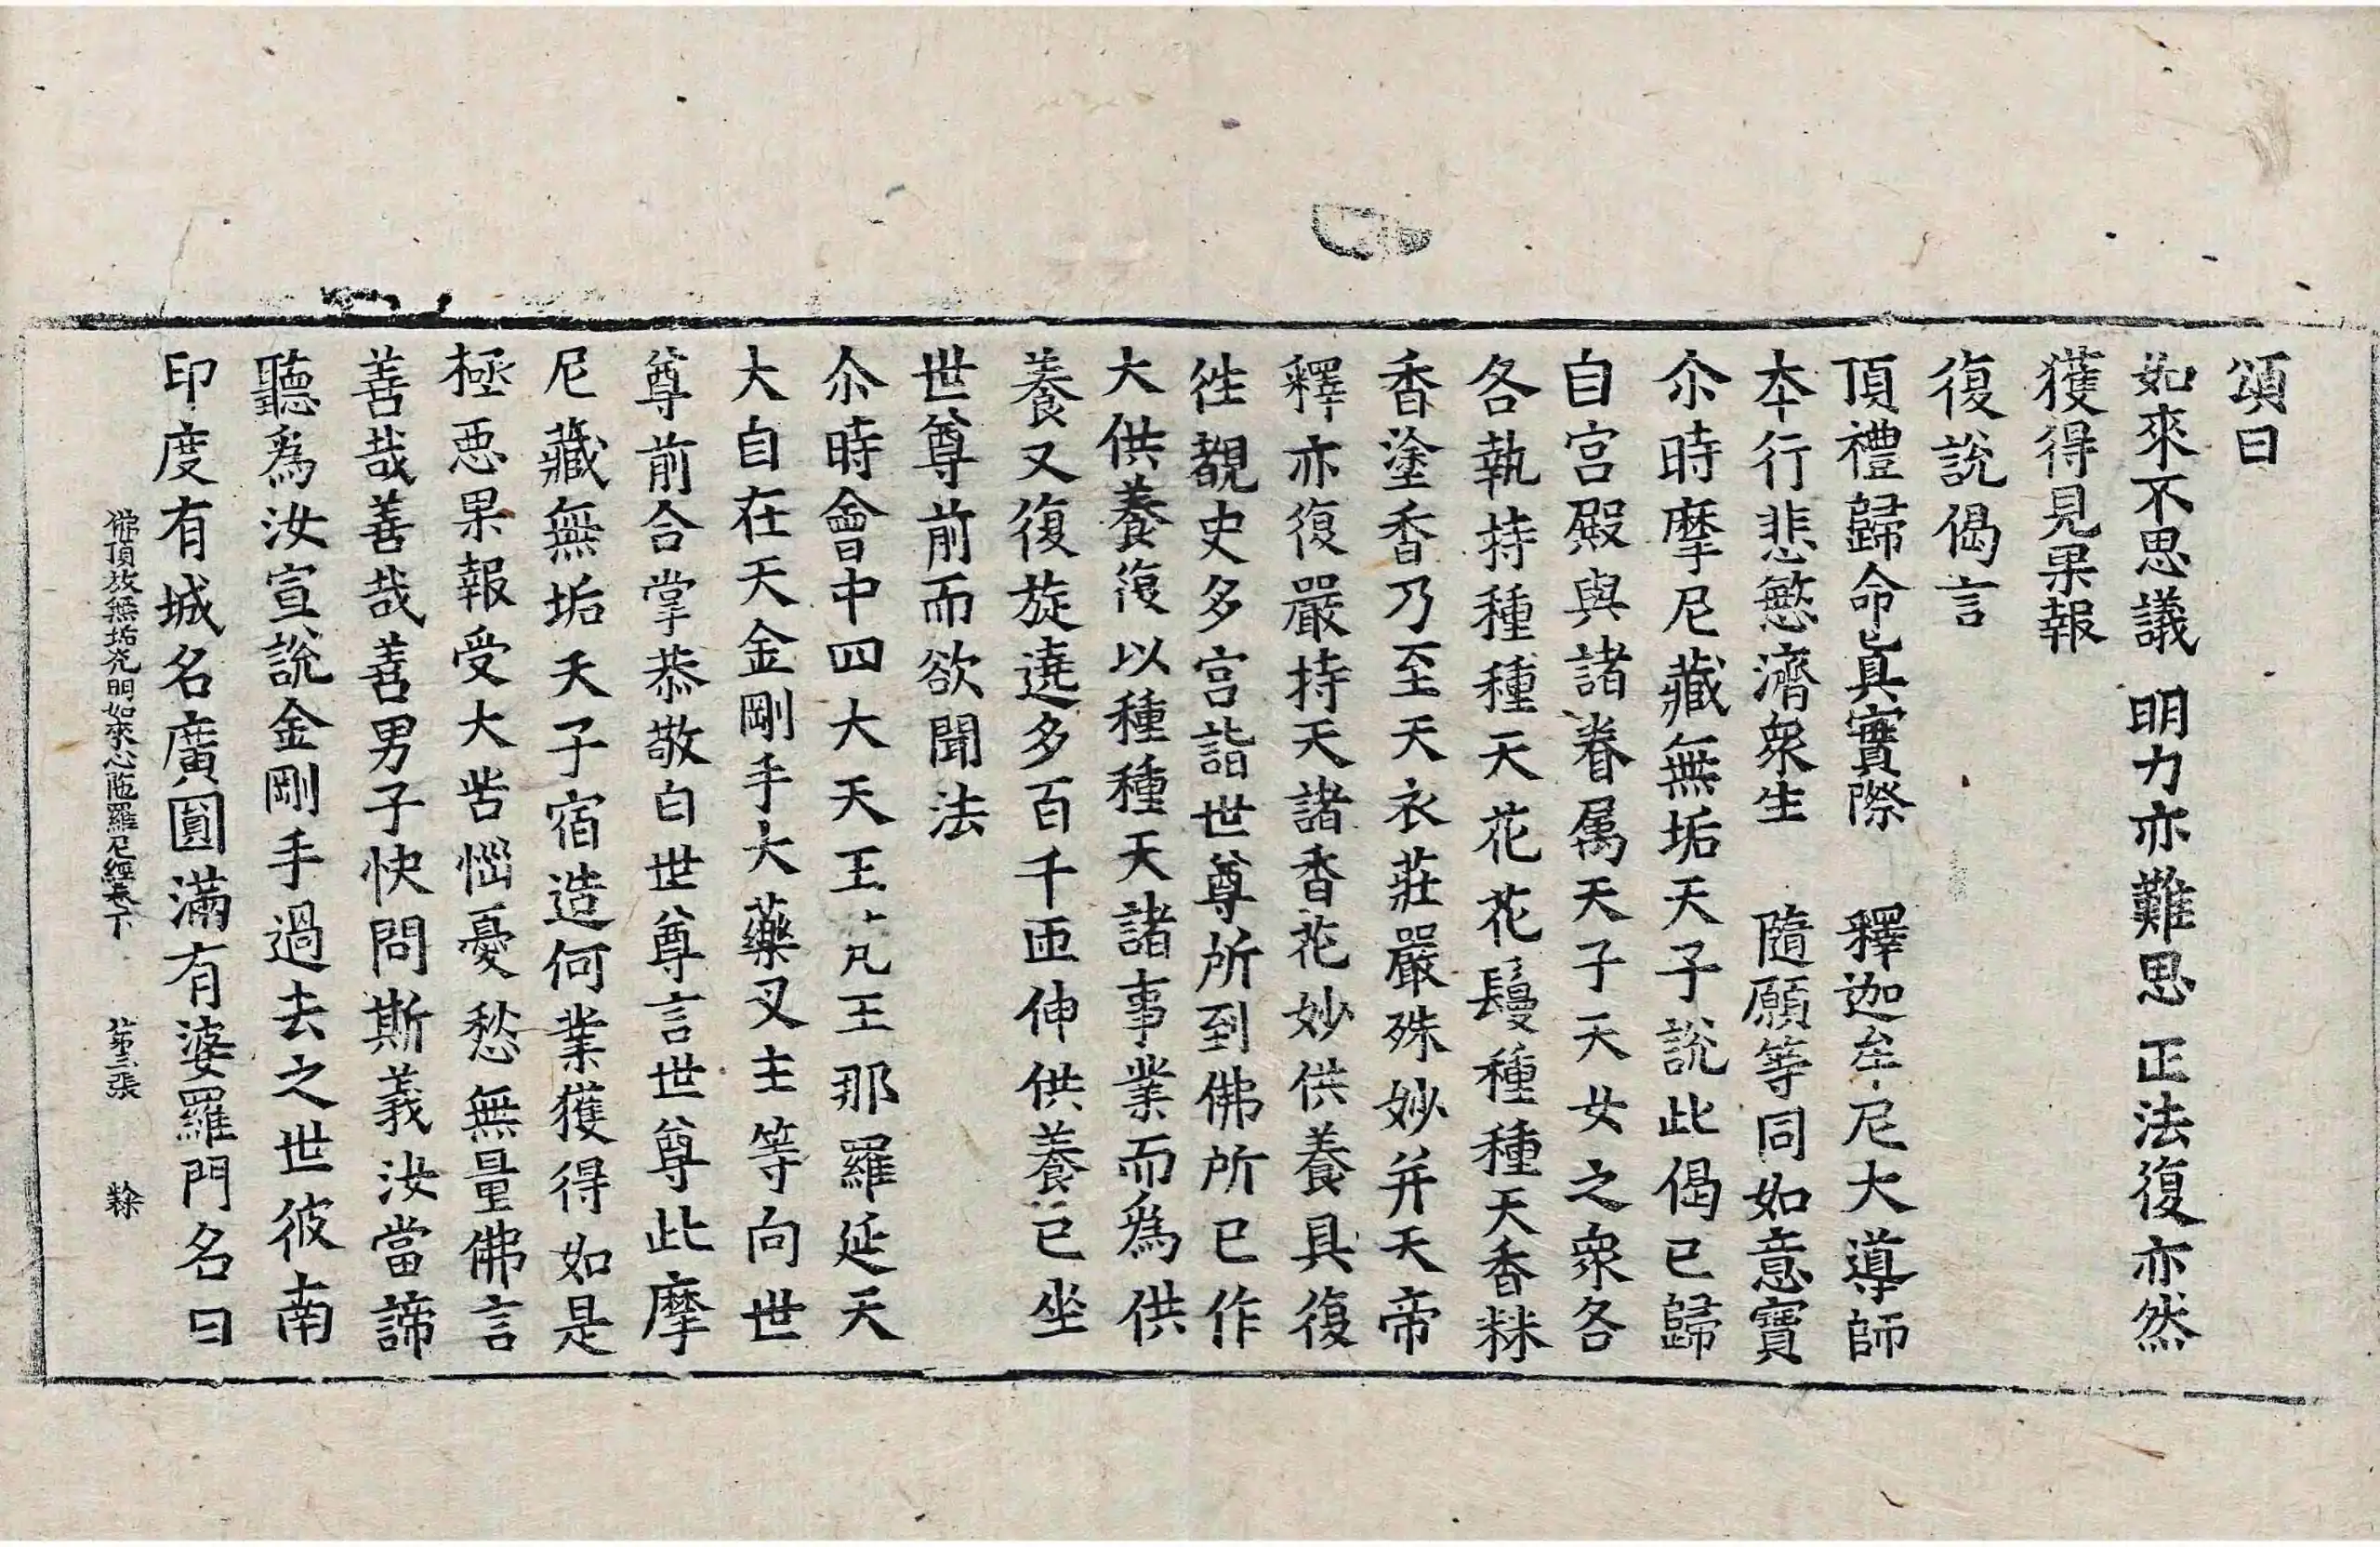 頌曰
如來不思議 明力亦難思 正法復亦然
獲得見果報
復說偈言
頂禮歸命眞實際 釋迦牟尼大導師
本行悲愍濟衆生 隨願等同如意寶
尒時摩尼藏無垢天子說此偈已歸
自宮殿與諸眷属天子天女之衆各
各執持種種天花花鬘種種天香粖
香塗香乃至天衣莊嚴殊妙并天帝
釋亦復嚴持天諸香花妙供養具復
徃覩史多宮詣世尊所到佛所已作
大供養復以種種天諸事業而爲供
養又復旋遶多百千匝伸供養已坐
世尊前而欲聞法
尒時會中四大天王大凡王那羅延天
大自在天金剛手大藥叉主等向世
尊前合掌恭敬白世尊言世尊此摩
尼藏無垢天子宿造何業獲得如是
極惡果報受大苦惱憂愁無量佛言
善哉善哉善男子快問斯義汝當諦
聽爲汝宣說金剛手過去之世彼南
印度有城名廣圓滿有婆羅門名曰
佛頂放無垢光明如來心陁羅尼經卷下 第三張 㯃